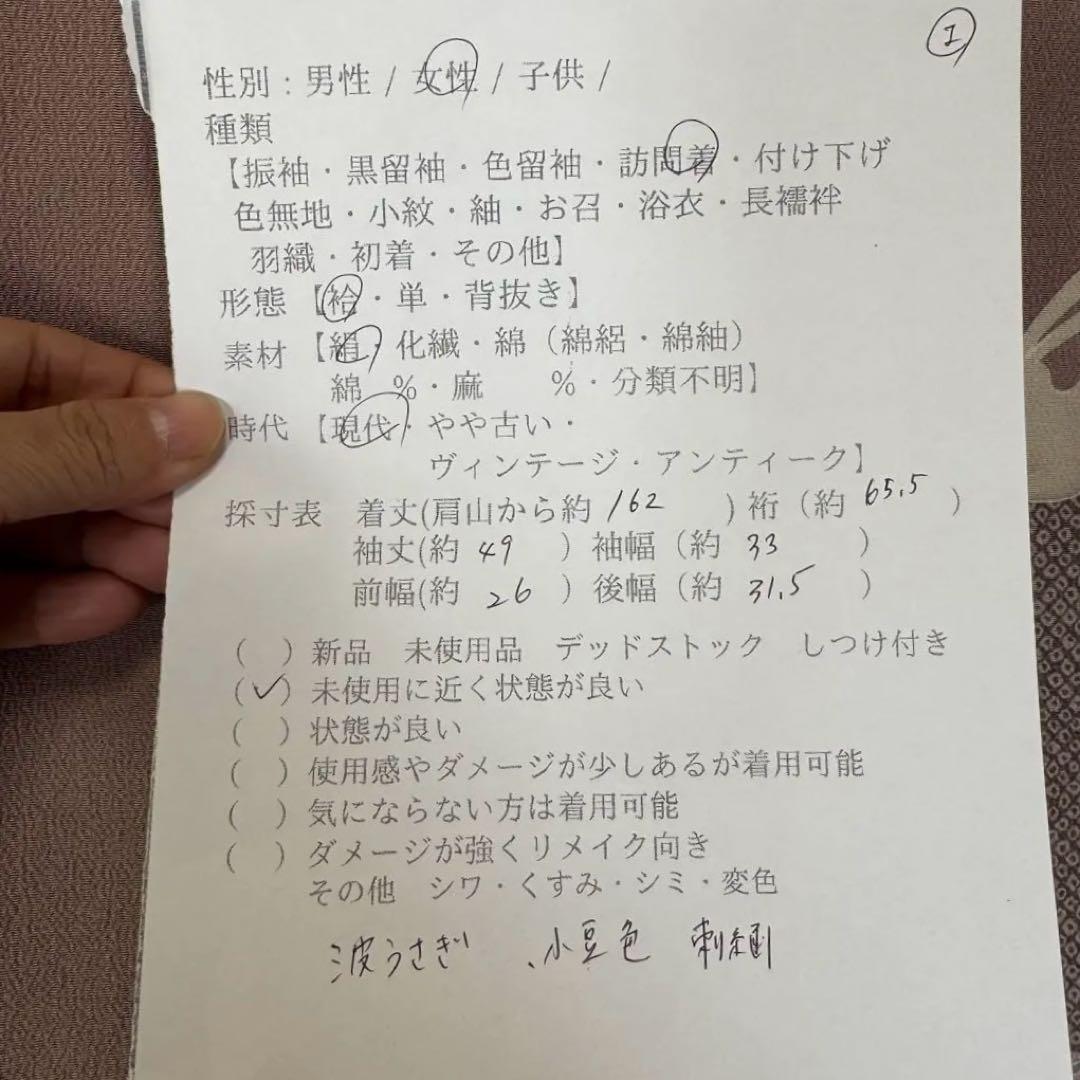 1
性別：男性 / 女性 / 子供 /
種類
【振袖・黒留袖・色留袖・訪問着・付け下げ
色無地・小紋・紬・お召・浴衣・長襦袢
羽織・初着・その他】
形態【袷・単・背抜き】
素材【絹・化繊・綿（綿絽・綿紬）
綿　％・麻　　％・分類不明】
時代【現代・やや古い・
ヴィンテージ・アンティーク】
採寸表　着丈(肩山から約 162　) 裄（約 65.5　）
袖丈(約 49　）袖幅（約 33　）
前幅(約 26　）後幅（約 31.5　）
（　）新品　未使用品　デッドストック　しつけ付き
（✓）未使用に近く状態が良い
（　）状態が良い
（　）使用感やダメージが少しあるが着用可能
（　）気にならない方は着用可能
（　）ダメージが強くリメイク向き
その他　シワ・くすみ・シミ・変色
波うさぎ　、小豆色　刺繍